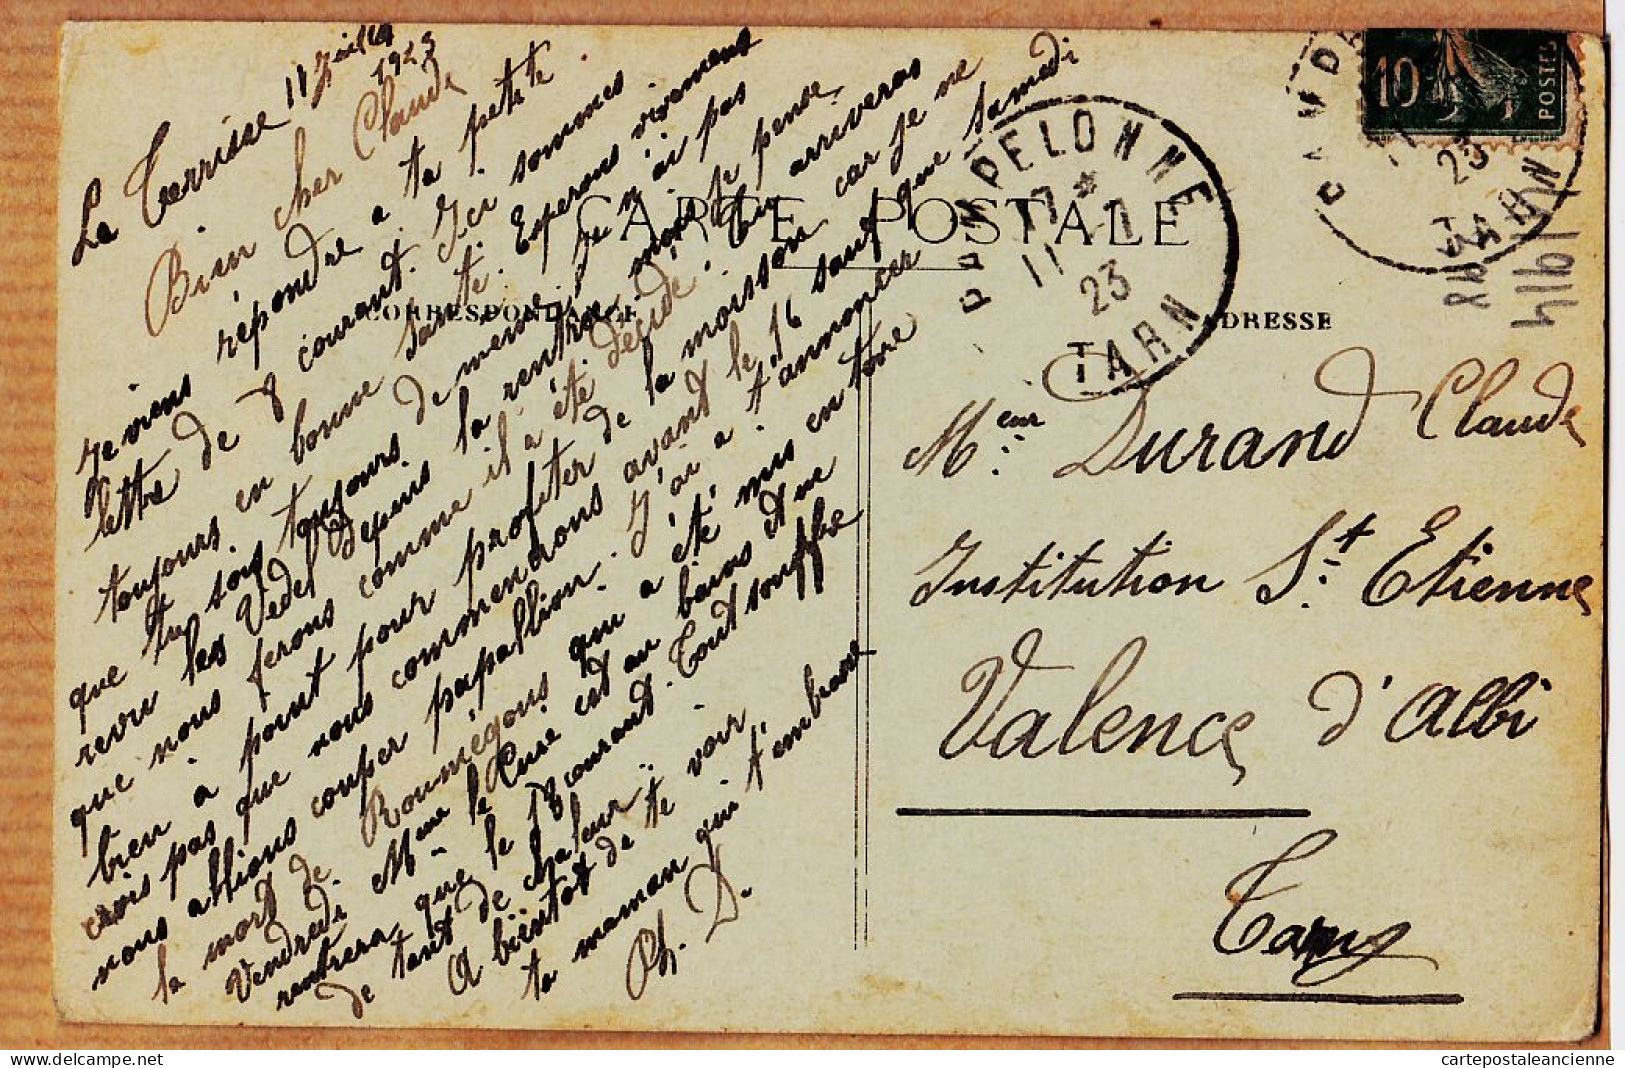 La Terrisse 11 Juillet
1923
Bien cher Claude
Je viens répondre a ta petite
lettre de 8 courant. Ici sommes
toujours en bonne santé. Esperons vivement
que tu sois toujours de meme. Je n'ai pas
revu les Vedel depuis la rentrée, mais je pense
que nous ferons comme il a été décidé. Tu arriveras
bien a point pour profiter de la moisson car je ne
crois pas que nous commendrons avant le 16 sauf que samedi
nous allions couper papallion. J'ai a t'annoncer
la mort de Roumégous qui a été mis en terre
Vendredi Meur le Curé est au bains et ne
rentrera que le 18 courant. Tout souffre
de tant de chaleur.
A bientot de te voir
ta maman qui t'embrasse
Ph. D.
CARTE POSTALE
CORRESPONDANCE
ADRESSE
PAMPELONNE
17 *
11 - 7
23
TARN
10
POSTES
23
TARN
1914
Meur Durand Claude
Institution St. Etienne
Valence d'Albi
Tarn
cartepostaleancienne